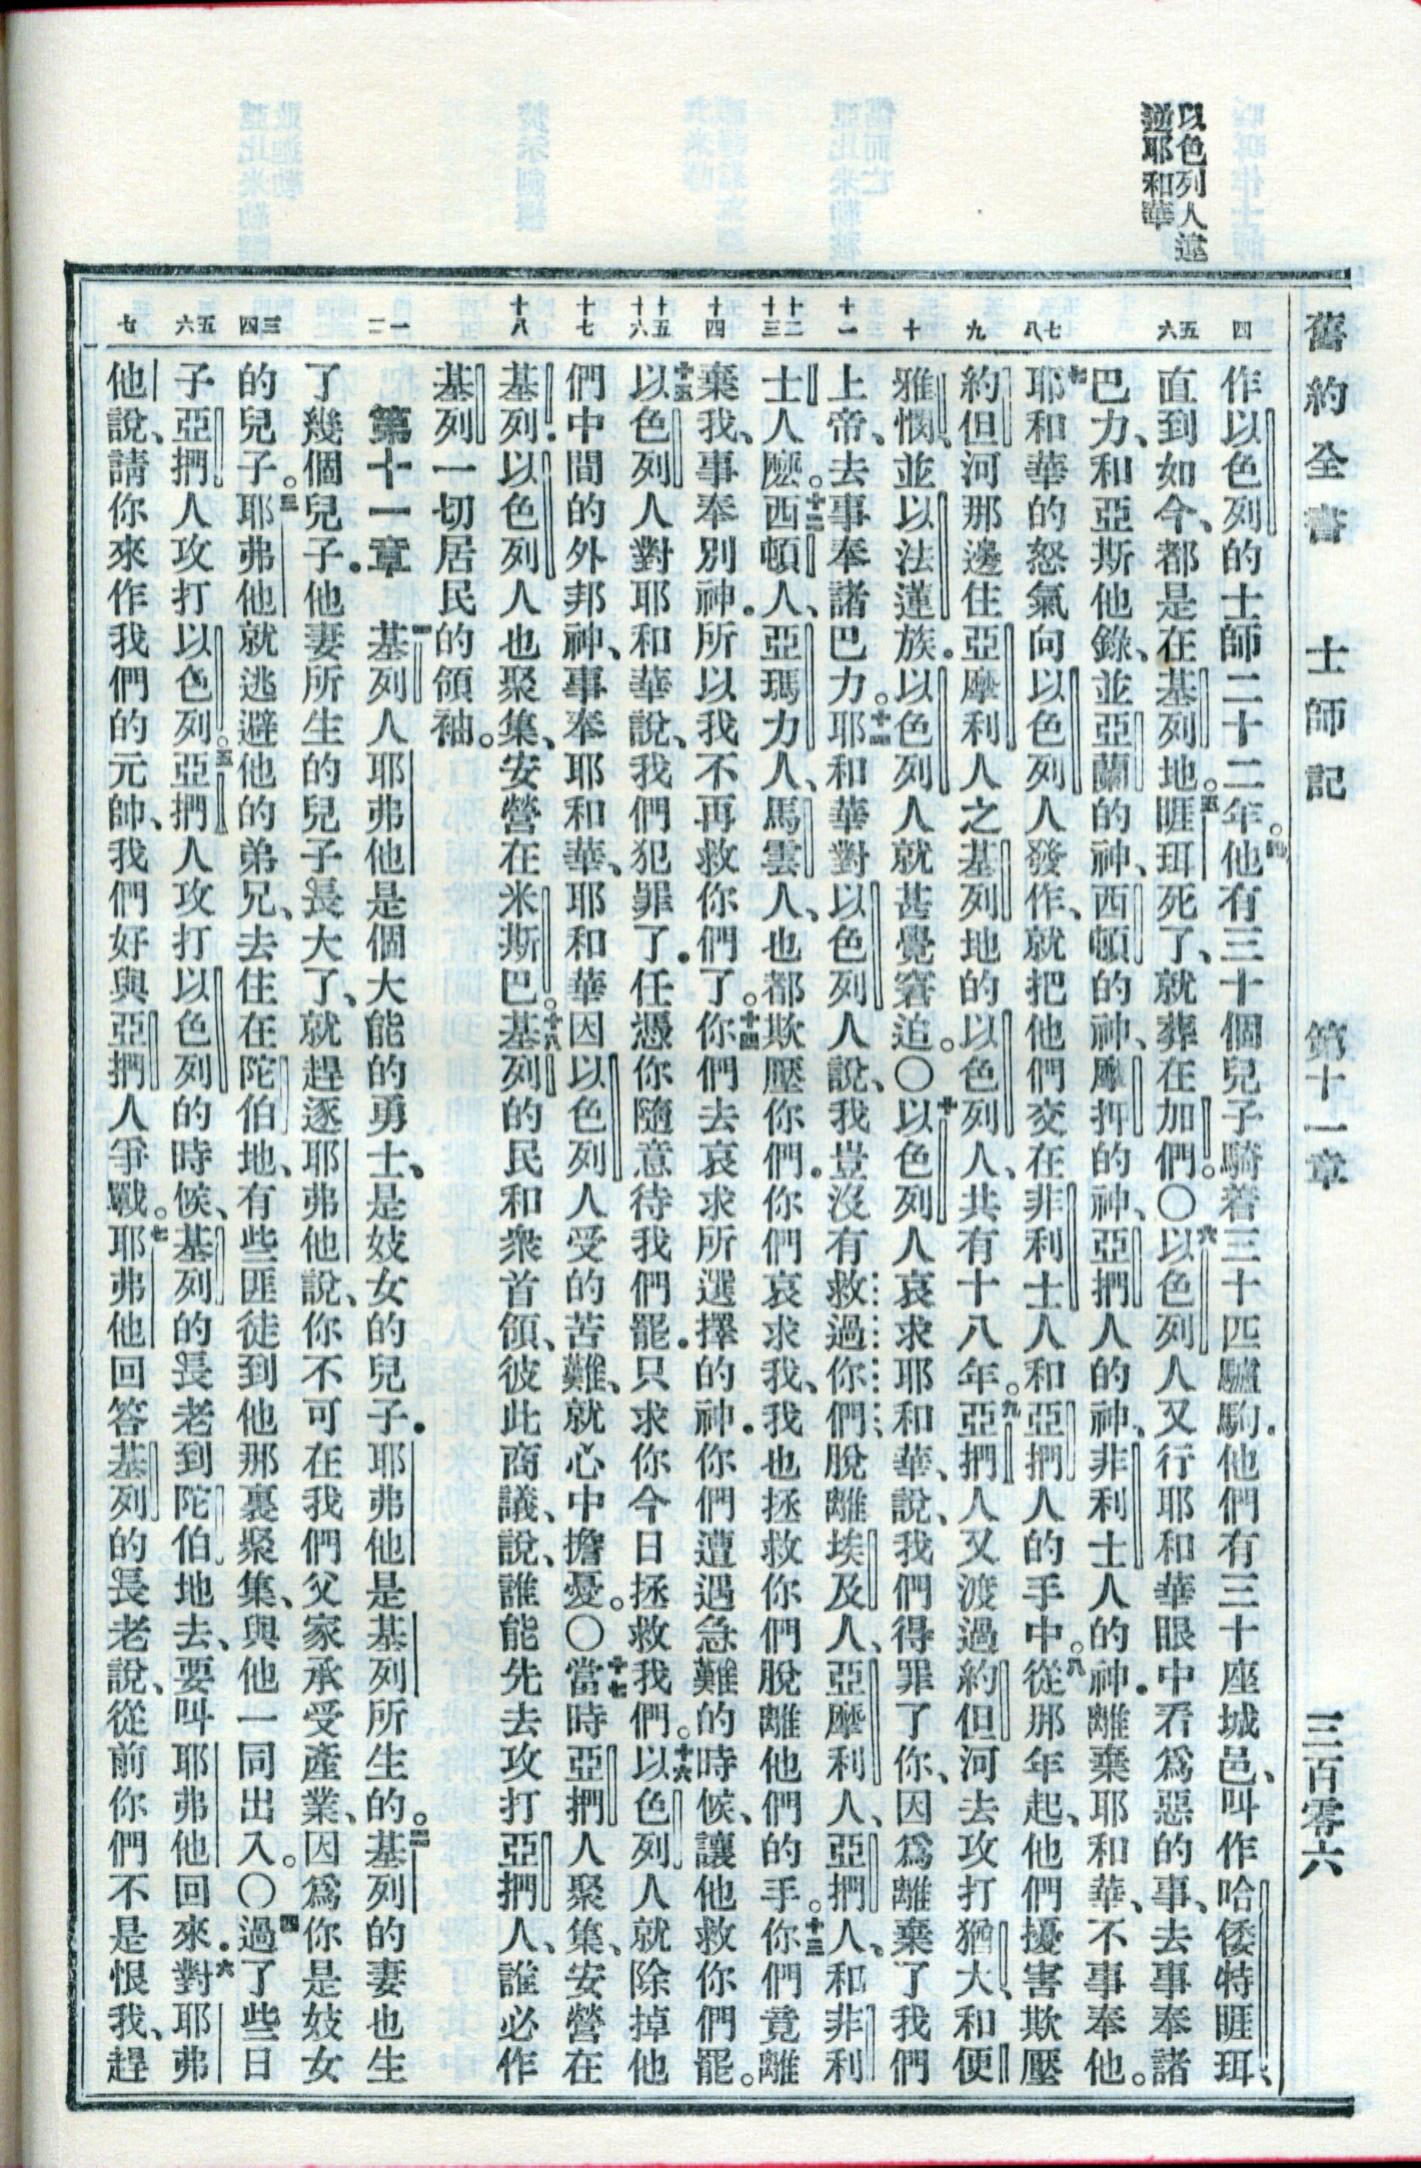 以色列人違
逆耶和華
舊約全書 士師記 第十一章 三百零六
四
作以色列的士師二十二年。四他有三十個兒子騎着三十匹驢駒．他們有三十座城邑、叫作哈倭特睚珥、
五六
直到如今、都是在基列地。五睚珥死了、就葬在加們。〇六以色列人又行耶和華眼中看爲惡的事、去事奉諸
巴力、和亞斯他錄、並亞蘭的神、西頓的神、摩押的神、亞捫人的神、非利士人的神．離棄耶和華、不事奉他。
七八
七耶和華的怒氣向以色列人發作、就把他們交在非利士人和亞捫人的手中。八從那年起、他們擾害欺壓
九
約但河那邊住亞摩利人之基列地的以色列人、共有十八年。九亞捫人又渡過約但河去攻打猶大、和便
十
雅憫、並以法蓮族．以色列人就甚覺窘迫。〇十以色列人哀求耶和華、說、我們得罪了你、因爲離棄了我們
十一
上帝、去事奉諸巴力。十一耶和華對以色列人說、我豈沒有救過你們脫離埃及人、亞摩利人、亞捫人、和非利
十二十三
士人麼。十二西頓人、亞瑪力人、馬雲人、也都欺壓你們．你們哀求我、我也拯救你們脫離他們的手。十三你們竟離
十四
棄我、事奉別神．所以我不再救你們了。十四你們去哀求所選擇的神．你們遭遇急難的時候、讓他救你們罷。
十五十六
十五以色列人對耶和華說、我們犯罪了．任憑你隨意待我們罷．只求你今日拯救我們。十六以色列人就除掉他
十七
們中間的外邦神、事奉耶和華、耶和華因以色列人受的苦難、就心中擔憂。〇十七當時亞捫人聚集、安營在
十八
基列．以色列人也聚集、安營在米斯巴。十八基列的民和衆首領、彼此商議、說、誰能先去攻打亞捫人、誰必作
基列一切居民的領袖。
一二
第十一章 一基列人耶弗他是個大能的勇士、是妓女的兒子．耶弗他是基列所生的。二基列的妻也生
了幾個兒子．他妻所生的兒子長大了、就趕逐耶弗他說、你不可在我們父家承受產業、因爲你是妓女
三四
的兒子。三耶弗他就逃避他的弟兄、去住在陀伯地、有些匪徒到他那裏聚集、與他一同出入。〇四過了些日
五六
子亞捫人攻打以色列。五亞捫人攻打以色列的時候、基列的長老到陀伯地去、要叫耶弗他回來．六對耶弗
七
他說、請你來作我們的元帥、我們好與亞捫人爭戰。七耶弗他回答基列的長老說、從前你們不是恨我、趕